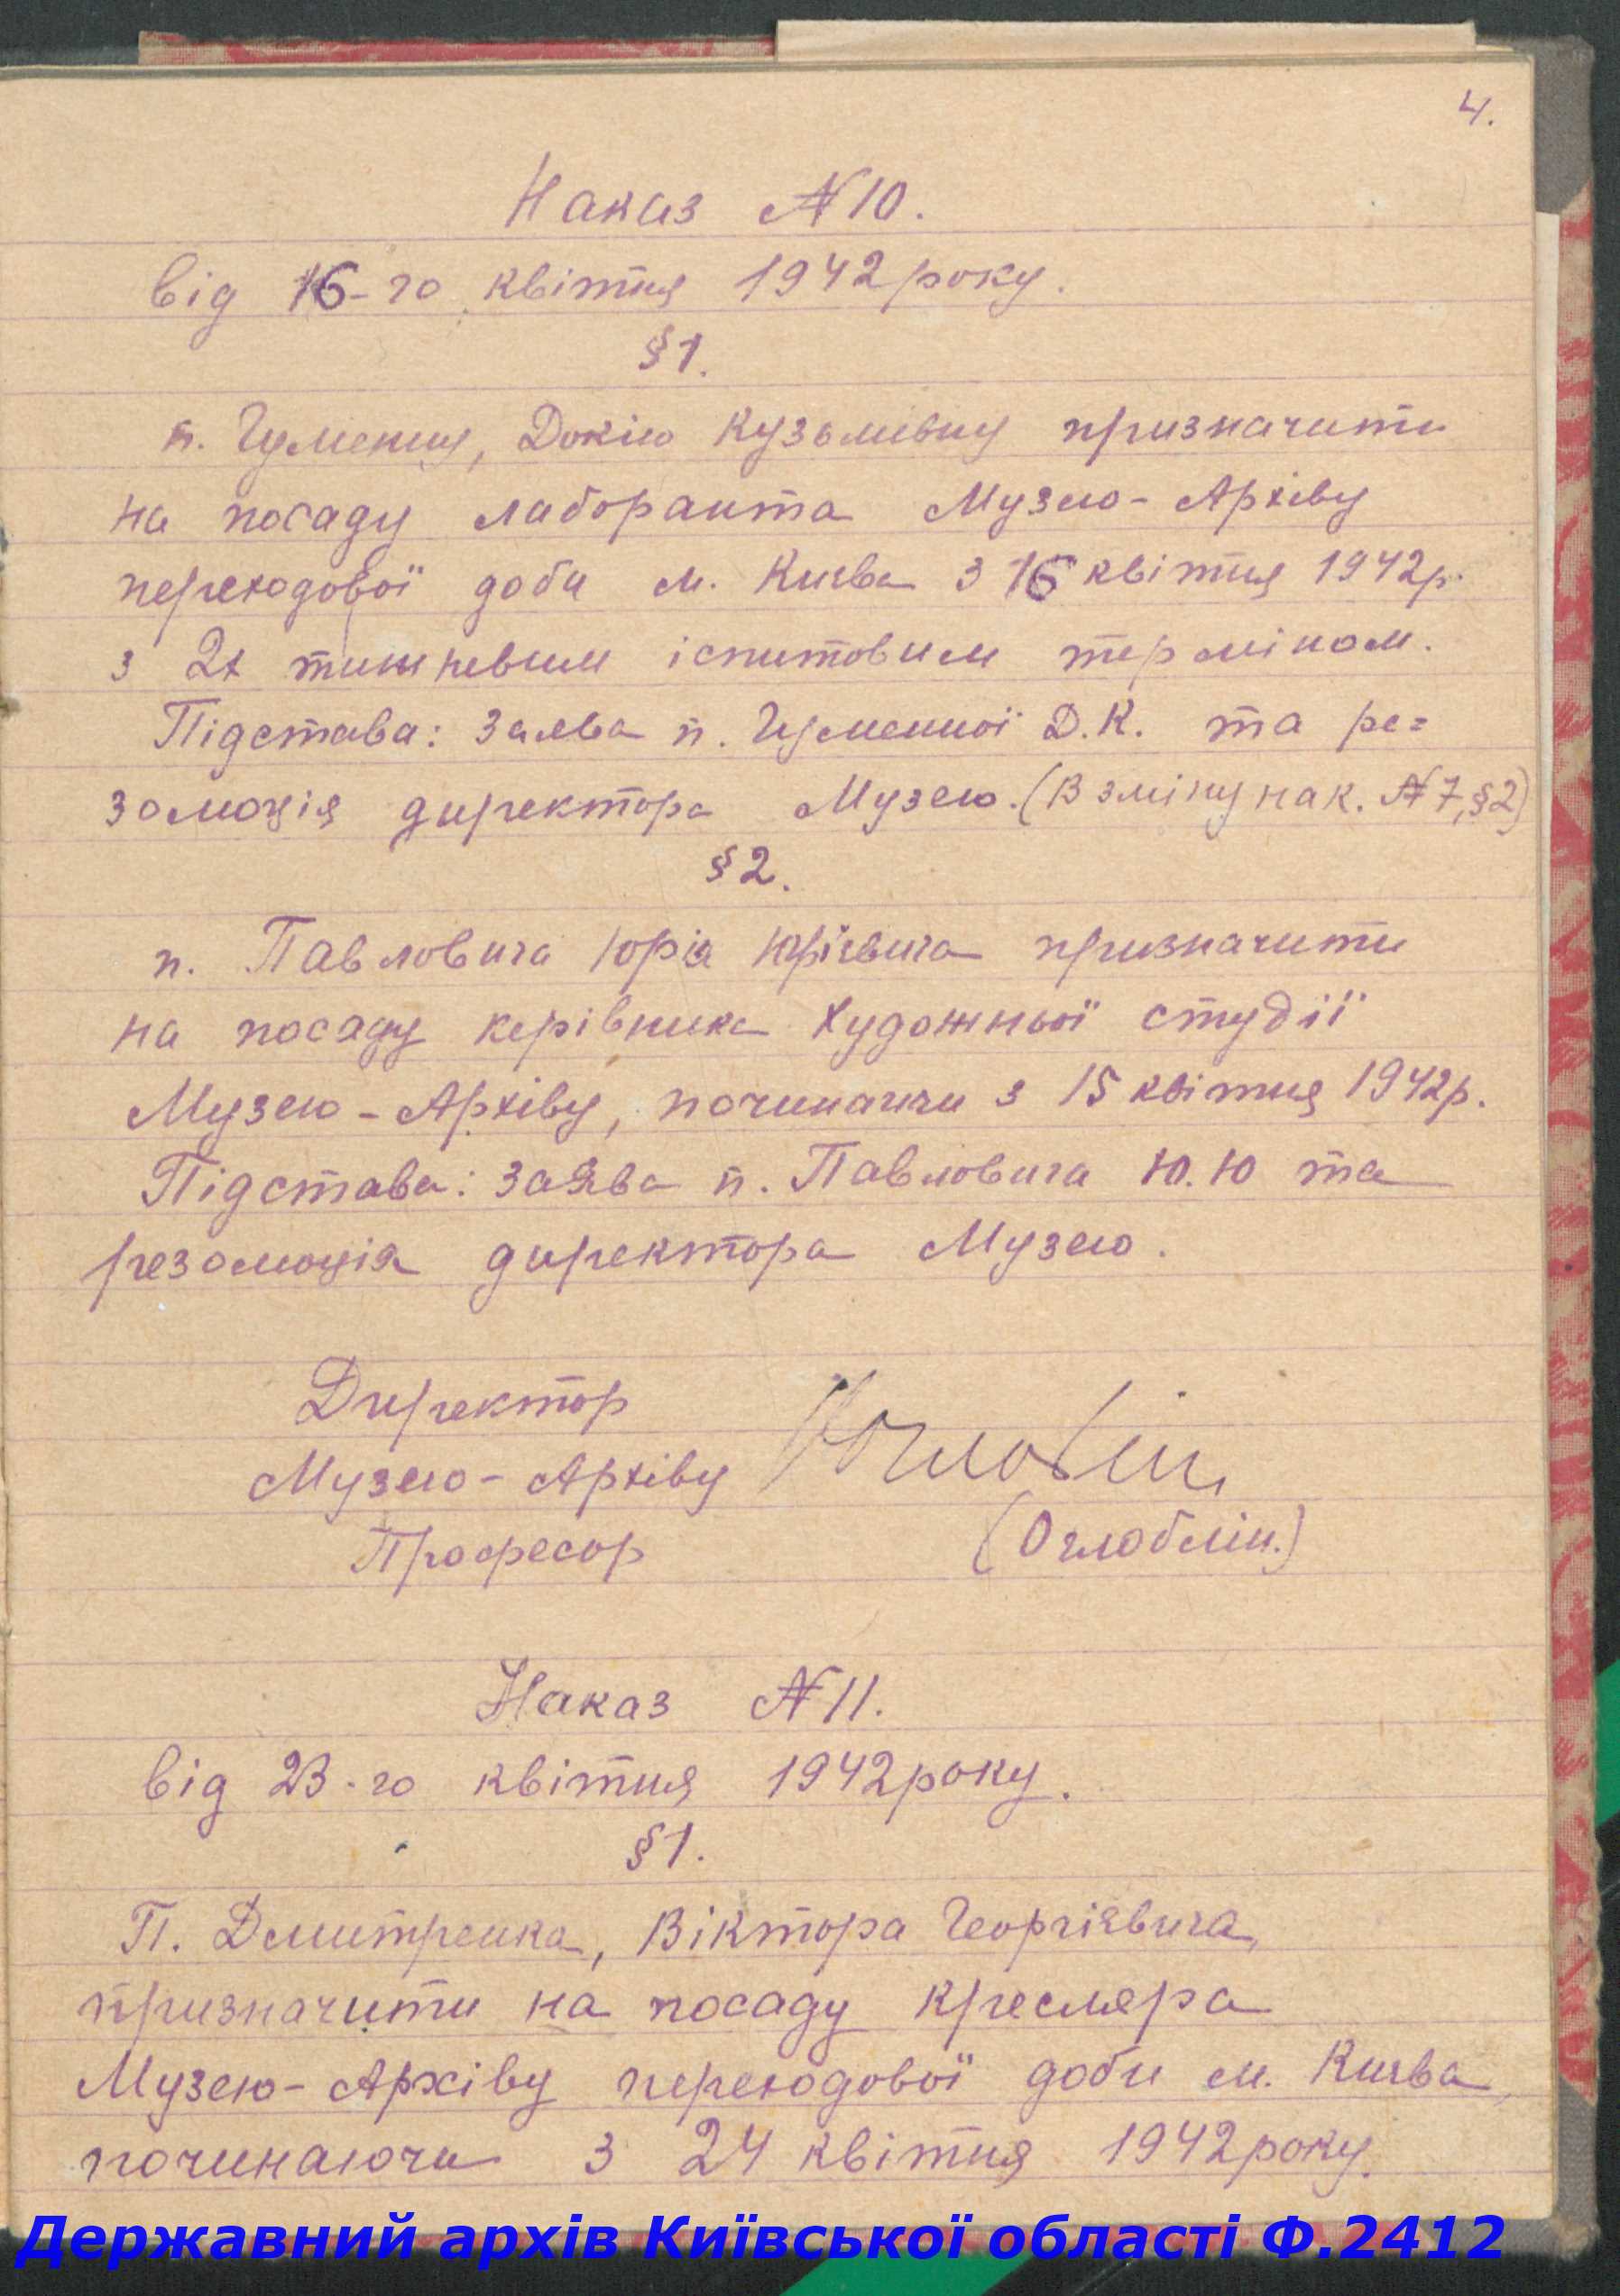 4.
Наказ №10.
від 16-го квітня 1942 року.
§1.
п. Гуменну, Докію Кузьмівну призначити
на посаду лаборанта Музею-Архіву
переходової доби м. Києва з 16 квітня 1942р.
з 2х тижневим іспитовим терміном.
Підстава: Заява п. Гуменної Д.К. та ре=
золюція директора Музею. (В зміну нак. №7, §2)
§2.
п. Павловича Юрія Юрієвича призначити
на посаду керівника Художньої студії
Музею-Архіву, починаючи з 15 квітня 1942р.
Підстава: Заява п. Павловича Ю.Ю та
резолюція директора Музею.
Директор
Музею-Архіву
Професор
(Оглоблін.)
Наказ №11.
від 23-го квітня 1942 року.
§1.
П. Дмитренка, Віктора Георгієвича,
призначити на посаду кресляра
Музею-Архіву переходової доби м. Києва,
починаючи з 24 квітня 1942 року.
Державний архів Київської області Ф.2412